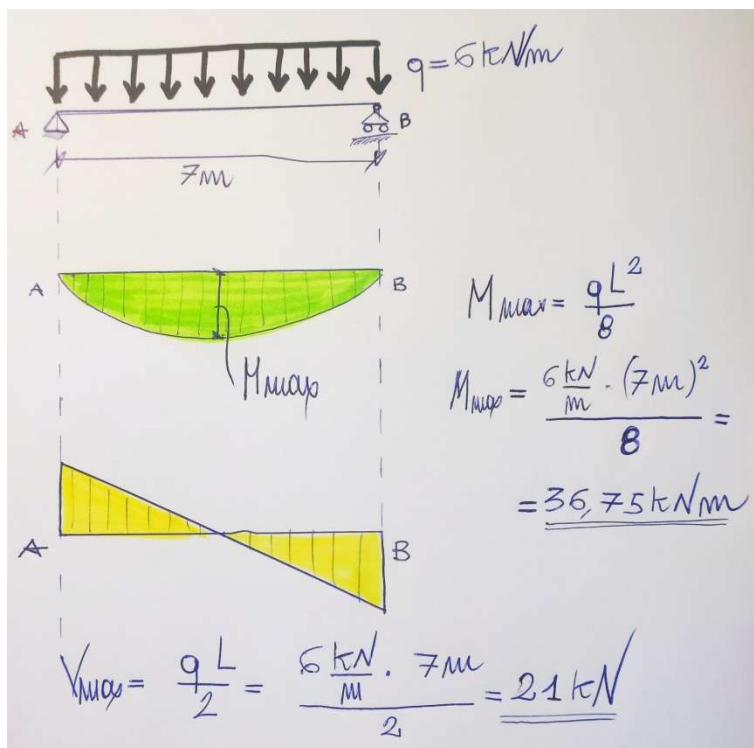 q = 6 kNm
A B
7m
A B
Mmax
Mmax = qL²/8
Mmax = 6 kN/m · (7m)²/8 =
= 36,75 kNm
A B
Vmax = qL/2 = 6 kN/m · 7m/2 = 21 kN